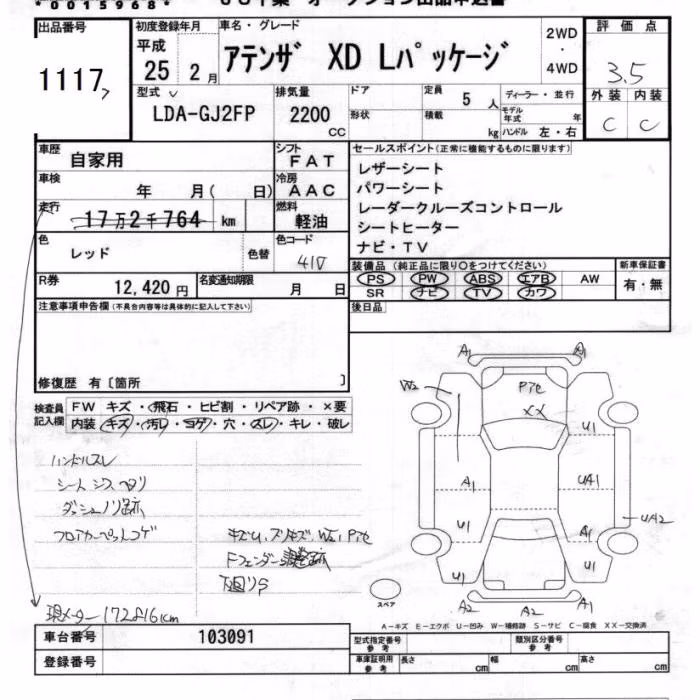 *0015968*
出品番号
1117
初度登録年月
平成
25 2月
車名・グレード
アテンザ XD Lパッケージ
2WD
・
4WD
評価点
3.5
外装 内装
C C
型式
LDA-GJ2FP
排気量
2200
CC
ドア
形状
定員
5人
積載
kg
ディーラー・並行
モデル年式 年
ハンドル 左・右
車歴
自家用
シフト
FAT
車検
年 月( 日)
冷房
AAC
走行
17万2千764 km
燃料
軽油
色
レッド
色替
色コード
41V
R券
12,420円
名変通知期限
月 日
セールスポイント(正常に機能するものに限ります)
レザーシート
パワーシート
レーダークルーズコントロール
シートヒーター
ナビ・TV
装備品(純正品に限り○をつけてください)
PS PW ABS エアB AW
SR ナビ TV カワ
新車保証書
有・無
後日品
注意事項申告欄(不具合内容等は具体的に記入して下さい)
修復歴 有〔箇所 〕
検査員記入欄
FW キズ・飛石・ヒビ割・リペア跡・×要
内装 キズ・汚レ・コゲ・穴・スレ・キレ・破レ
ハンドルスレ
シートシワヘタリ
ダッシュノリ跡
フロアカーペットコゲ
キズU、スリキズ、W2、Pite
Fフェンダー
下回りS
現メーター172816km
A1
A1
W2
Pite
XX
U1
A1
UA1
U1
A1
UA2
U1
U1
A2
A2
A1
スペア
A-キズ E-エクボ U-凹み W-補修跡 S-サビ C-腐食 XX-交換済
車台番号
103091
登録番号
型式指定番号
参考
類別区分番号
参考
車庫証明用
参考
長さ cm 幅 cm 高さ cm